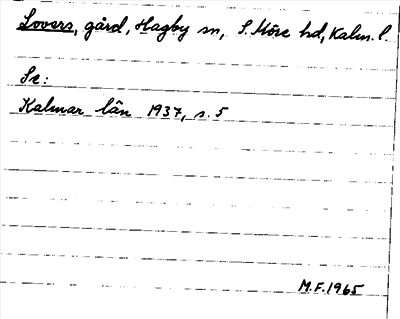 Lovers, gård, Hagby sn, S. Möre hd, Kalm. l.
Se:
Kalmar län 1937, s. 5
M.F. 1965